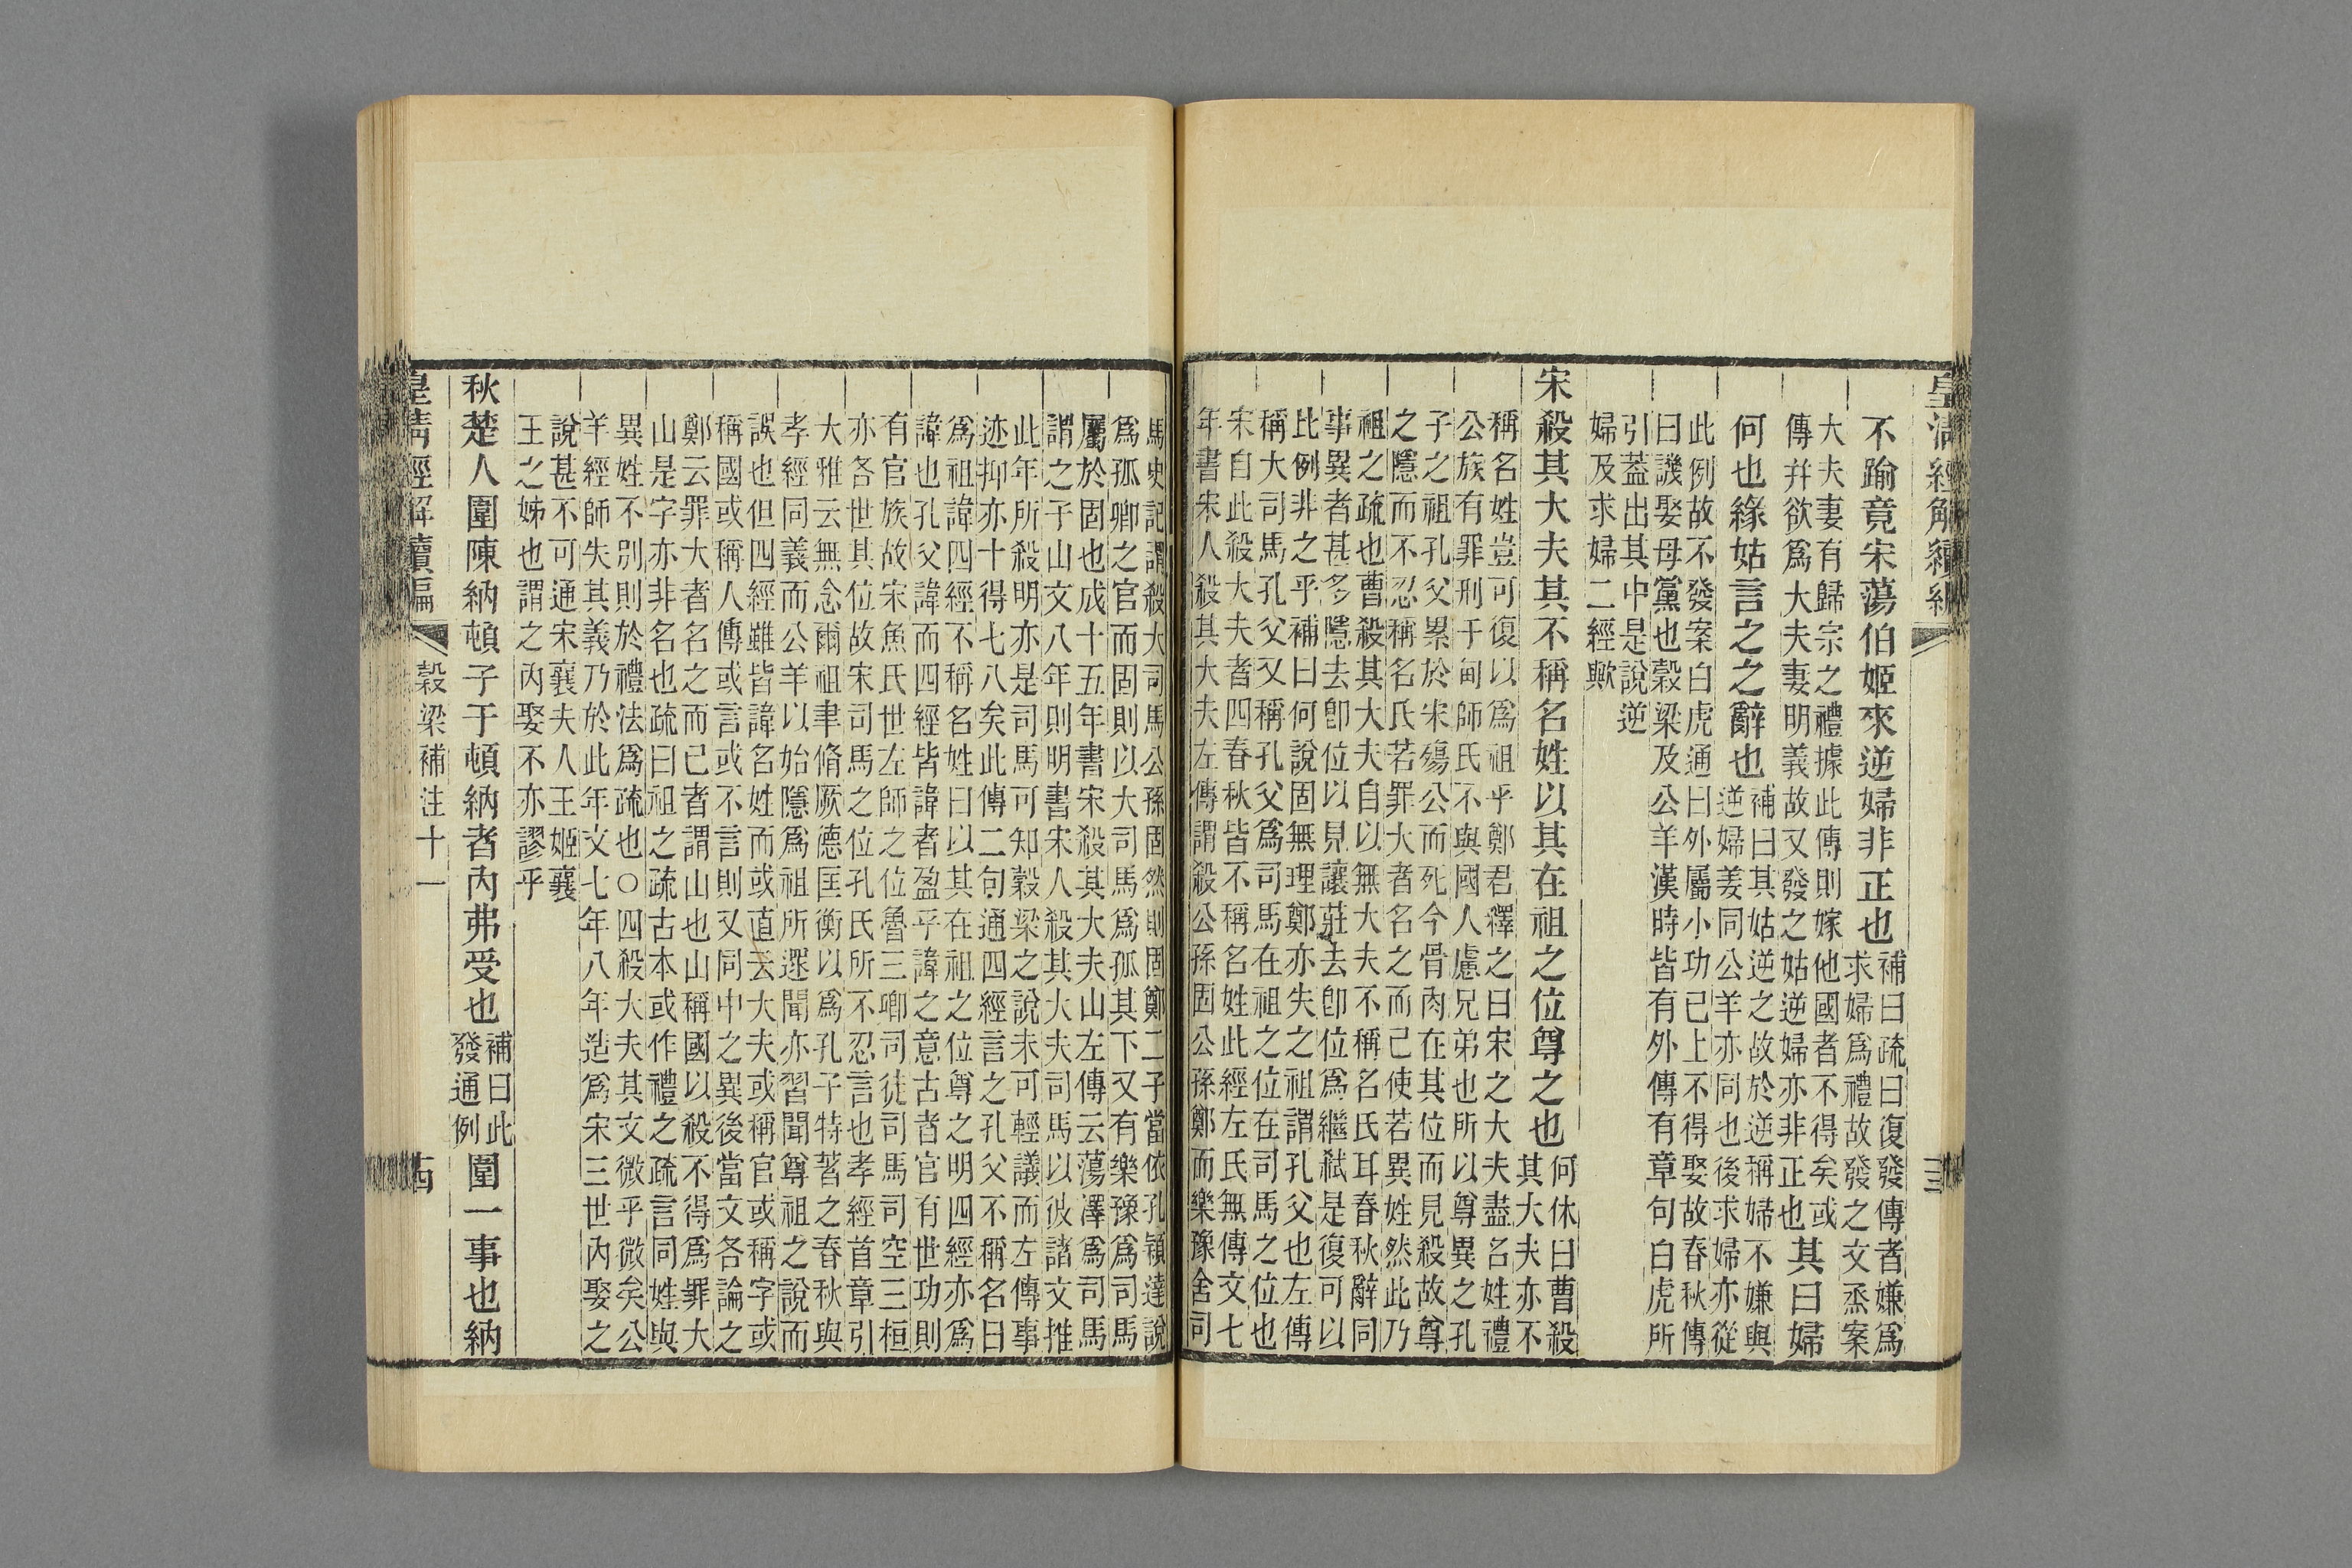 皇清經解續編
不踰竟宋蕩伯姬來逆婦非正也補曰疏曰復發傳者嫌爲
求婦爲禮故發之文烝案
大夫妻有歸宗之禮據此傳則嫁他國者不得矣或
傳幷欲爲大夫妻明義故又發之姑逆婦亦非正也其曰婦
何也緣姑言之之辭也補曰其姑逆之故於逆稱婦不嫌與
逆婦姜同公羊亦同也後求婦亦從
此例故不發案白虎通曰外屬小功已上不得娶故春秋傳
曰譏娶母黨也穀梁及公羊漢時皆有外傳有章句白虎所
引蓋出其中是說逆
婦及求婦二經歟
宋殺其大夫其不稱名姓以其在祖之位尊之也何休曰曹殺
其大夫亦不
稱名姓豈可復以爲祖乎鄭君釋之曰宋之大夫盡名姓禮
公族有罪刑于甸師氏不與國人慮兄弟也所以尊異之孔
子之祖孔父累於宋殤公而死今骨肉在其位而見殺故尊
之隱而不忍稱名氏若罪大者名之而已使若異姓然此乃
祖之疏也曹殺其大夫自以無大夫不稱名氏耳春秋辭同
事異者甚多隱去卽位以見讓莊去卽位爲繼弒是復可以
比例非之乎補曰何說固無理鄭亦失之祖謂孔父也左傳
稱大司馬孔父又稱孔父爲司馬在祖之位在司馬之位也
宋自此殺大夫者四春秋皆不稱名姓此經左氏無傳文七
年書宋人殺其大夫左傳謂殺公孫固公孫鄭而樂豫舍司
馬史記謂殺大司馬公孫固然則固鄭二子當依孔穎達說
爲孤卿之官而固則以大司馬爲孤其下又有樂豫爲司馬
屬於固也成十五年書宋殺其大夫山左傳云蕩澤爲司馬
謂之子山文八年則明書宋人殺其大夫司馬以彼諸文推
此年所殺明亦是司馬可知穀梁之說未可輕議而左傳事
迹抑亦十得七八矣此傳二句通四經言之孔父不稱名曰
爲祖諱四經不稱名姓曰以其在祖之位尊之明四經亦爲
諱也孔父諱而四經皆諱者盈乎諱之意古者官有世功則
有官族故宋魚氏世左師之位魯三卿司徒司馬司空三桓
亦各世其位故宋司馬之位孔氏所不忍言也孝經首章引
大雅云無念爾祖聿脩厥德匡衡以爲孔子特著之春秋與
孝經同義而公羊以始隱爲祖所逮聞亦習聞尊祖之說而
誤也但四經雖皆諱名姓而或直云大夫或稱官或稱字或
稱國或稱人傳或言或不言則又同中之異後當文各論之
鄭云罪大者名之而已者謂山也山稱國以殺不得爲罪大
山是字亦非名也疏曰祖之疏古本或作禮之疏言同姓與
異姓不別則於禮法爲疏也○四殺大夫其文微乎微矣公
羊經師失其義乃於此年文七年八年造爲宋三世內娶之
說甚不可通宋襄夫人王姬襄
王之姊也謂之內娶不亦謬乎
秋楚人圍陳納頓子于頓納者內弗受也補曰此
發通例圍一事也納
皇清經解續編 穀梁補注十一